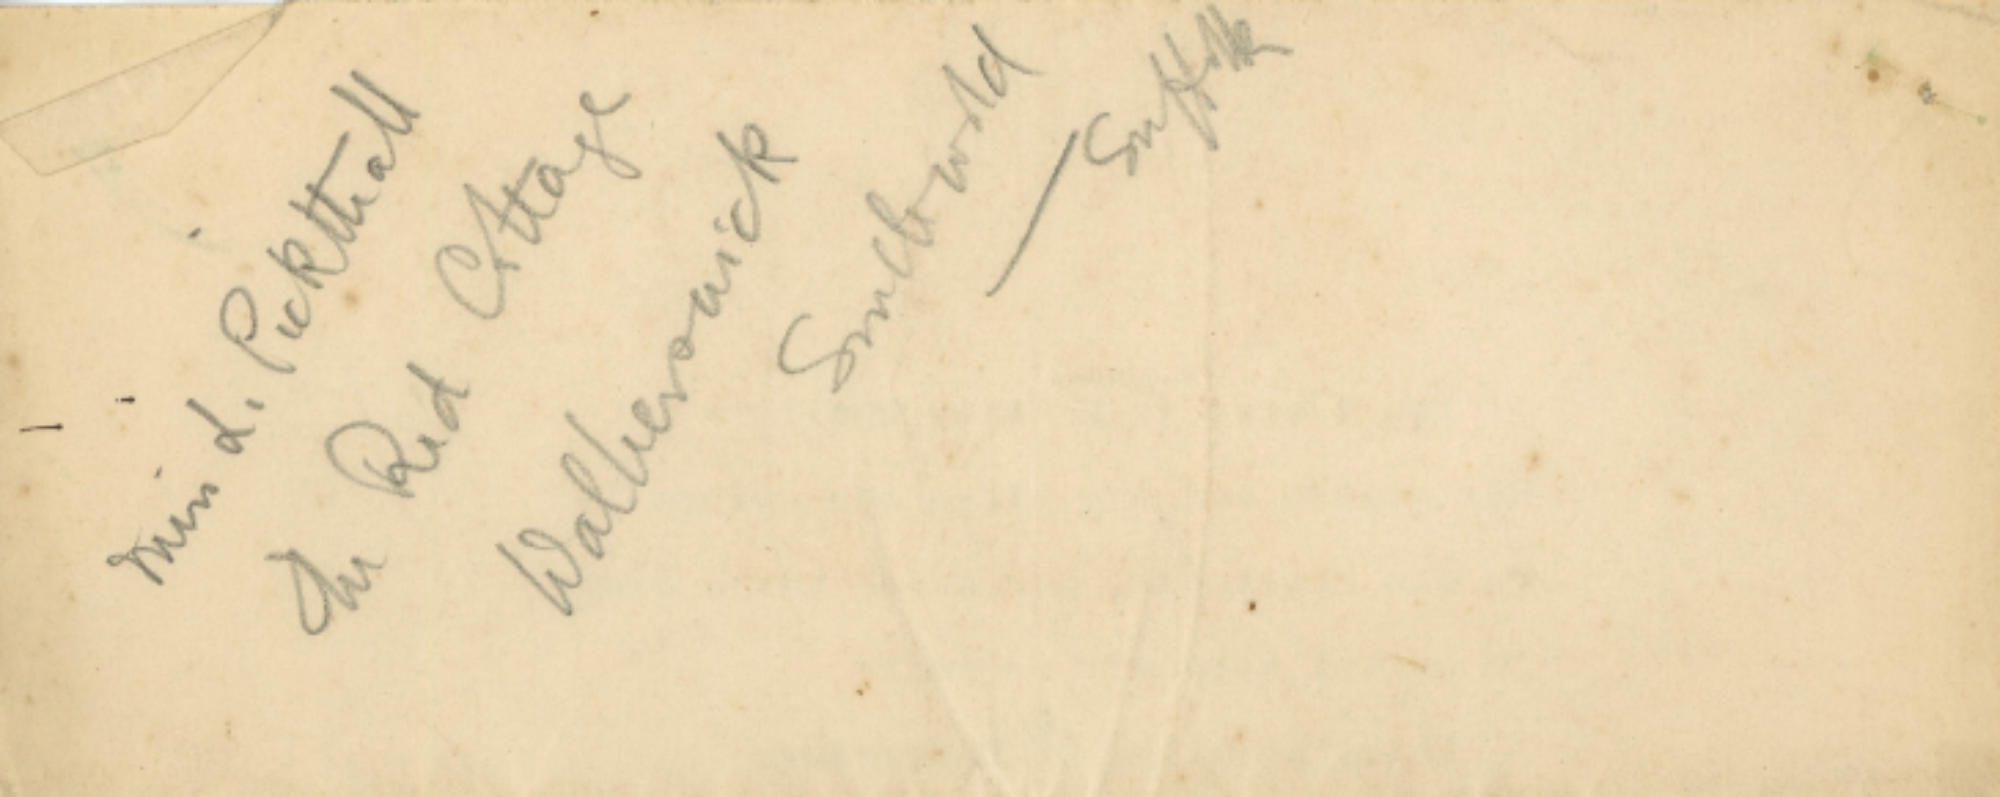 Miss L. Pickthall
The Red Cottage
Walberswick
Southwold
Suffolk